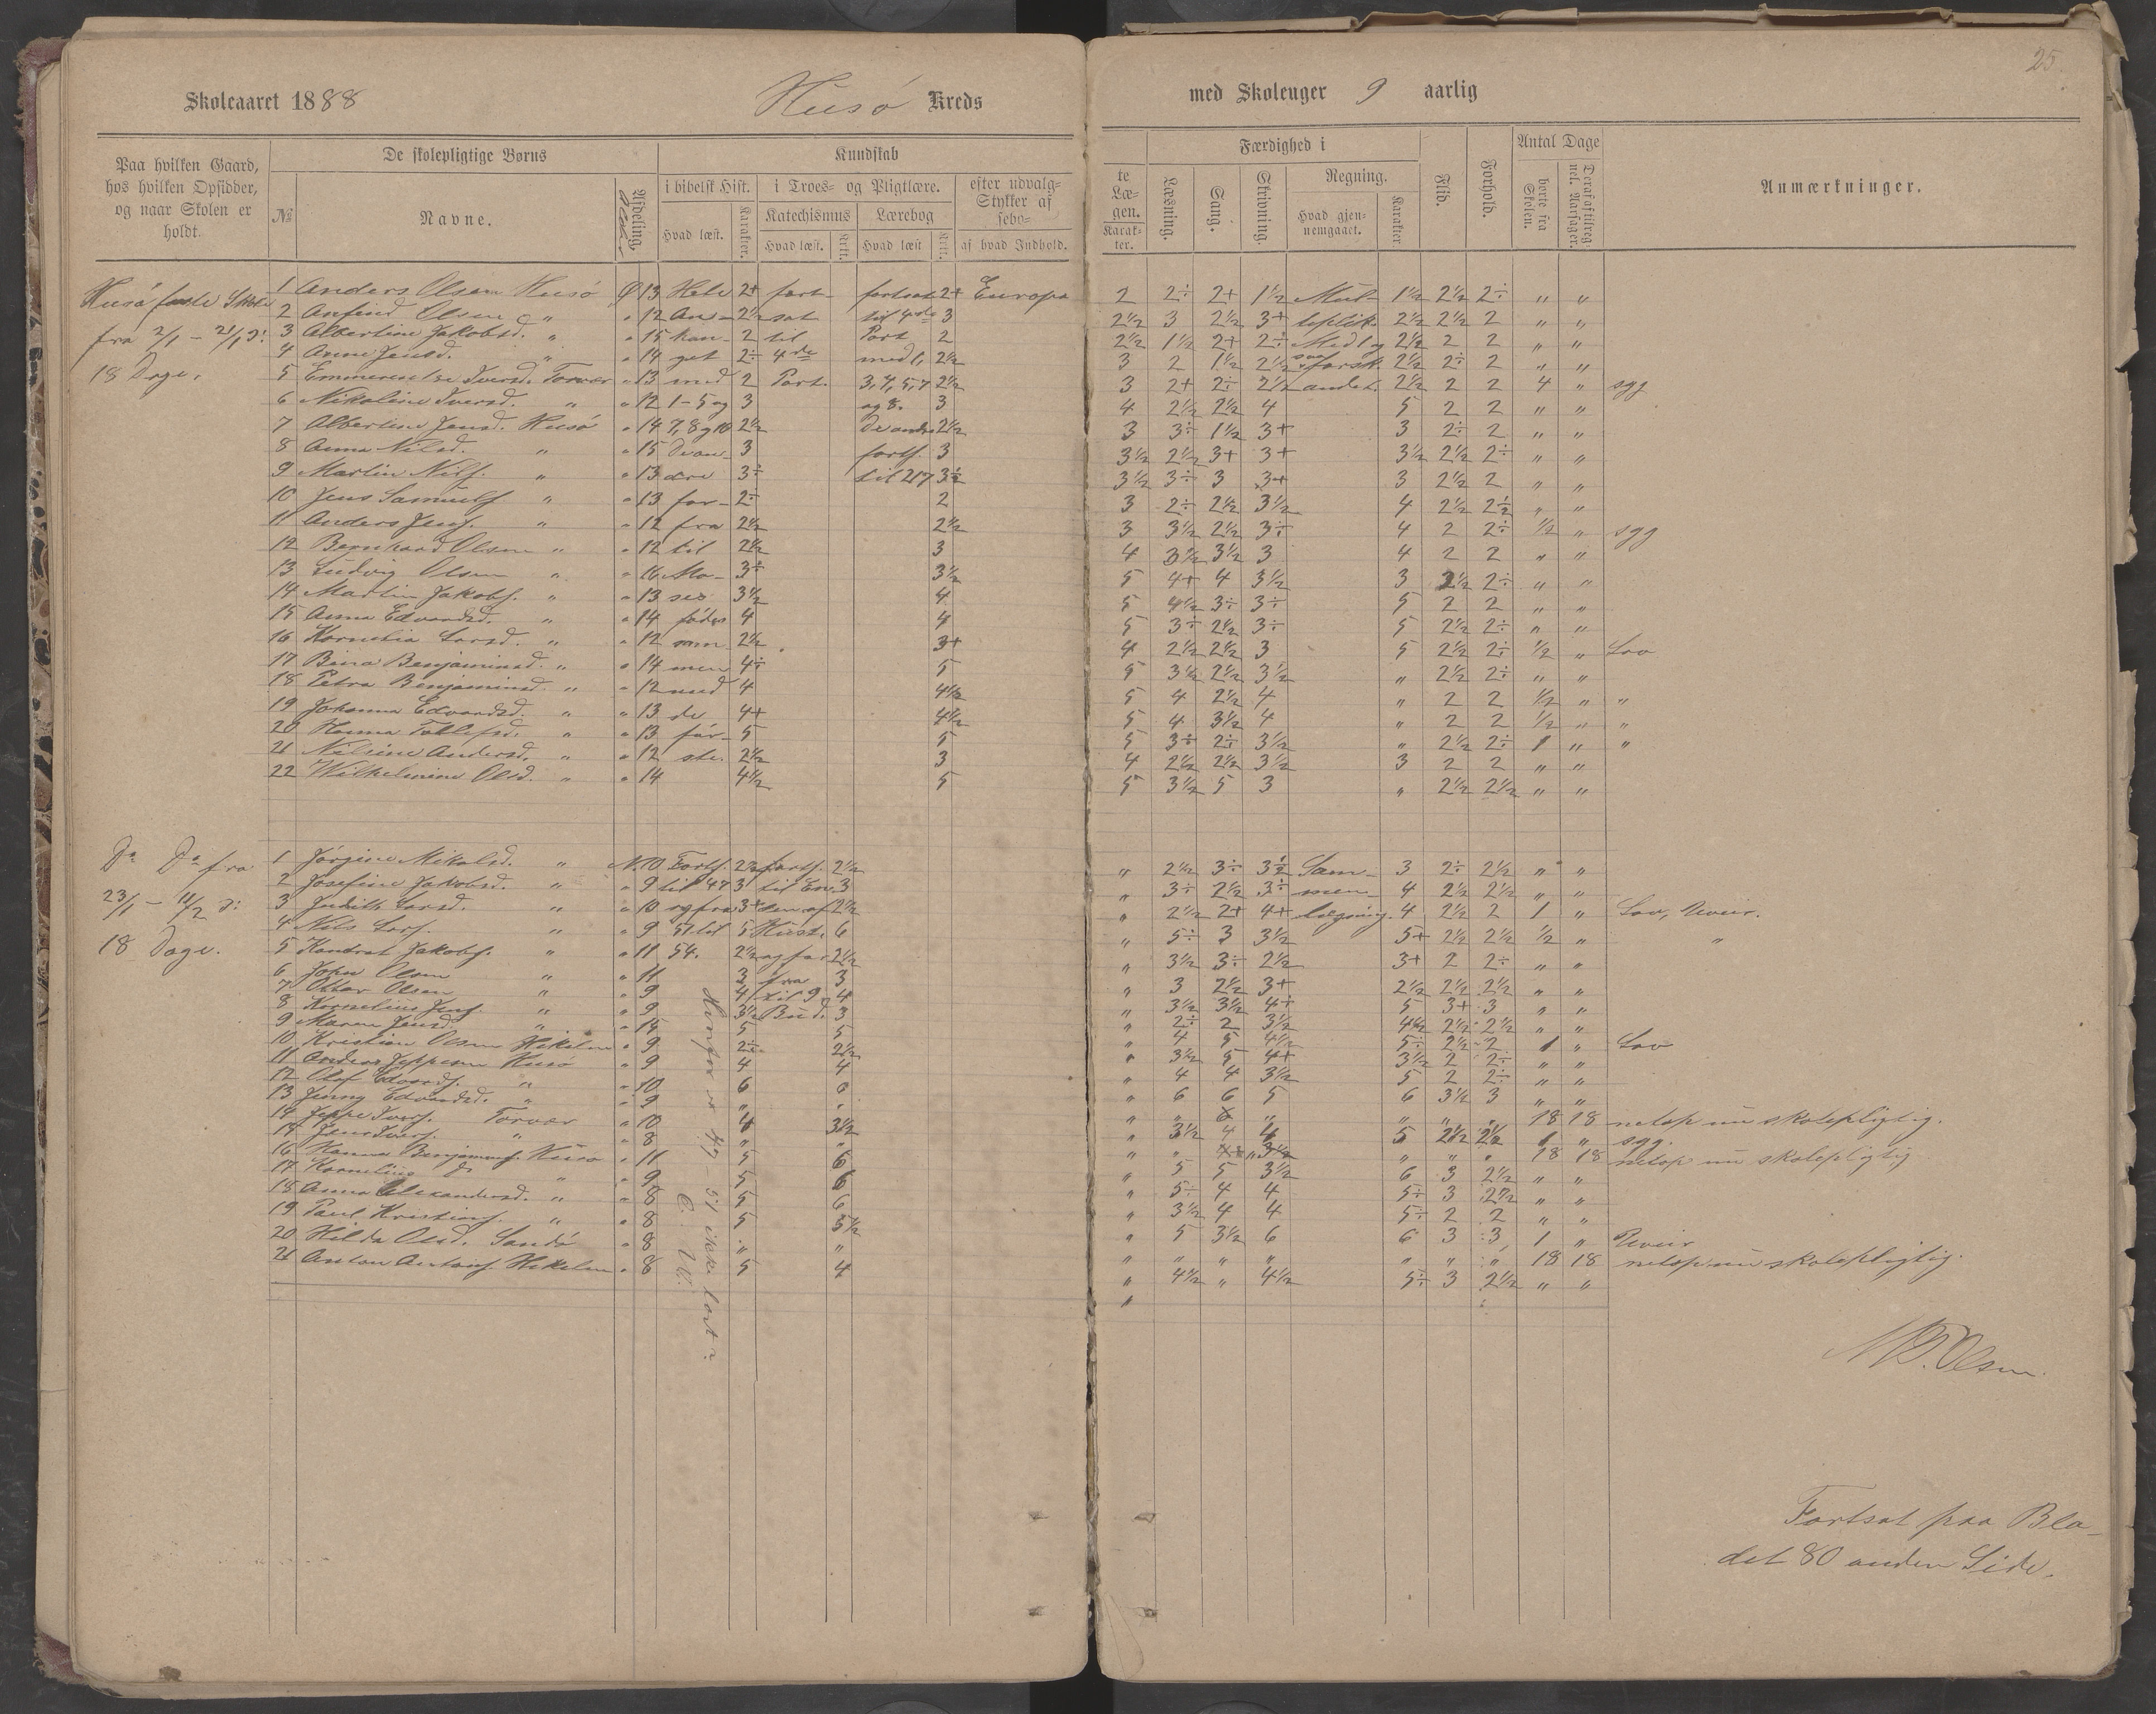 25.
Skoleaaret 1888 Husø Kreds med Skoleuger 9 aarlig
Paa hvilken Gaard, hos hvilken Opsidder, og naar Skolen er holdt.
De skolepligtige Børns
№ Navne. Afdeling. Alder
Kundskab
i bibelsk Hist. i Troes- og Pligtlære. efter udvalg- te
Stykker af Læ-
sebo- gen.
Katechismus Lærebog
Hvad læst. Karakter. Hvad læst. Krkt. Hvad læst Krkt. af hvad Indhold. Karak- ter.
Færdighed i
Læsning. Sang. Skrivning. Regning. Hvad gjen- nemgaaet. Karakter
Flid. Forhold. Antal Dage
borte fra Skolen. Deraf aftilreg- nel. Aarsager.
Anmærkninger.
Husø faste Skole
fra 2/1 - 21/1 ɔ:
18 Dage.
1 Anders Olsen Husø Ø 13 Hele 2+ fort- fortsat 2+ Europa 2 2÷ 2+ 1½ Mul- 1½ 2½ 2÷ " "
2 Anfind Olsen " " 12 An- 2½ sat til 4de 3 2½ 3 2½ 3+ teplik. 2½ 2½ 2 " "
3 Albertine Jakobsd. " " 15 han- 2 til Part 2 2½ 1½ 2+ 2÷ Med og 2½ 2 2 " "
4 Anne Jensd. " " 14 get 2÷ 4de med 1, 2½ 3 2 1½ 2½ forsk. 2½ 2÷ 2 " "
5 Emmerentse Iversd. Torvær " 13 med 2 Part. 3, 4, 5, 7 2½ 3 2+ 2÷ 2½ andet. 2½ 2 2 4 " syg
6 Nikoline Iversd. " " 12 1-5 og 3 og 8. 3 4 2½ 2½ 4 5 2 2 " "
7 Albertine Jensd. Husø " 14 7, 8 og 10 2½ De andre 2½ 3 3÷ 1½ 3+ 3 2÷ 2 " "
8 Anna Nilsd. " " 15 De an- 3 forts. 3 3½ 2½ 3+ 3+ 3½ 2½ 2÷ " "
9 Martin Nilss. " " 13 dre 3÷ til 217 3½ 3½ 3÷ 3 3+ 3 2½ 2 " "
10 Jens Samuels. " " 13 for- 2÷ 2 3 2÷ 2½ 3½ 4 2½ 2½ " "
11 Anders Jens. " " 12 fra 2½ 2½ 3 3½ 2½ 3÷ 4 2 2÷ ½ " syg
12 Bernhard Olsen " " 12 til 2½ 3 4 3½ 3½ 3 4 2 2 " "
13 Ludvig Olsen " " 16 Mo- 3÷ 3½ 5 4+ 4 3½ 3 2½ 2÷ " "
14 Martin Jakobs. " " 13 ses 3½ 4 5 4½ 3÷ 3÷ 5 2 2 " "
15 Anna Edvardsd. " " 14 fødes 4 4 5 3÷ 2½ 3÷ 5 2½ 2÷ " "
16 Kornelia Larsd. " " 12 2½ 3+ 4 2½ 2½ 3 5 2½ 2÷ ½ " Lov
17 Bina Benjaminsd. " " 14 men 4÷ 5 5 3½ 2½ 3½ " 2½ 2÷ " "
18 Petra Benjaminsd. " " 12 med 4 4½ 5 4 2½ 4 " 2 2 ½ " "
19 Johanna Edvardsd. " " 13 de 4+ 4½ 5 4 3½ 4 " 2 2 ½ " "
20 Hanna Tollefsd. " " 13 før- 5 5 5 3÷ 2÷ 3½ " 2½ 2÷ 1 " "
21 Nilsine Andersd. " " 12 ste. 2½ 3 4 2½ 2½ 3½ 3 2 2 " "
22 Wilhelmine Olsd. " " 14 4½ 5 5 3½ 5 3 " 2½ 2½ " "
Do Do fra
23/1 - 11/2 ɔ:
18 Dage.
1 Jørgine Mikalsd. " N. 10 Forts. 2½ forts. 2½ " 2½ 3÷ 3½ Sam- 3 2÷ 2½ " "
2 Josefine Jakobsd. " " 9 til 47 3 til 3 " 3÷ 2½ 3÷ men- 4 2½ 2½ " "
3 Judith Larsd. " " 10 og fra 3+ 2½ " 2½ 2+ 4+ lægning. 4 2½ 2 1 " Lov, Uveir.
4 Nils Lars. " " 9 51 til 5 6 " 5÷ 3 3½ 5+ 2½ 2½ ½ " "
5 Konrat Jakobs. " " 11 54. 2½ 2½ " 3½ 3÷ 2½ 3+ 2 2÷ " "
6 John Olsen " " 11 3 fra 3 " 3 2½ 3+ 2½ 2½ 2½ " "
7 Ottar Olsen " " 9 4 til 9 4 " 3½ 3½ 4+ 5 3+ 3 " "
8 Kornelius Jens. " " 9 3½ Bud. 3 " 2÷ 2 3½ 4½ 2½ 2½ " "
9 Maren Jensd. " " 14 5 5 " 4 5 4½ 5÷ 2½ 2 1 " Lov
10 Kristian Olsen Hikelen " 9 2÷ 2½ " 3½ 5 4+ 3½ 2 2÷ " "
11 Andreas Jeppesen Husø " 9 4 4 " 4 4 3½ 5 2 2÷ " "
12 Olaf Edvards. " " 10 6 6 " 6 6 5 6 3½ 3 " "
13 Jenny Edvardsd. " " 9 " " " " " " " " 18 18 netop nu skolepligtig.
14 Jeppe Ivers. Torvær " 10 4 3½ " 3½ 4 4 5 2½ 2½ 1 " syg.
14 Jens Ivers. " " 8 " " " " " " " 18 18 netop nu skolepligtig
16 Hanna Benjamins. Husø " 11 5 6 " 5 5 3½ 6 3 2½ " "
17 Kornelius do " " 9 5 6 " 5÷ 4 4 5÷ 3 2½ " "
18 Anna Alexandersd. " " 8 5 6 " 3½ 4 4 5÷ 2 2 " "
19 Paul Kristians. " " 8 5 5½ " 5 3½ 6 6 3 3 1 " Uveir
20 Hilda Olsd. Sandø " 8 " " " " " " " " " 18 18 netop nu skolepligtig.
21 Anton Antons. Hikelen " 8 5 4 " 4½ " 4½ 5÷ 3 2½ " "
47-51 ikke
Olsen.
Fortsat paa Bla-
det 80 anden Side.